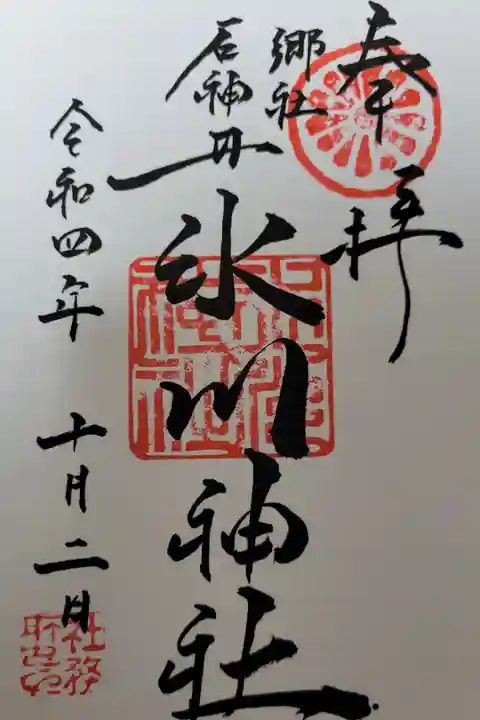 奉拝
郷社
石神井
氷川神社
令和四年 十月二日
氷川神社
社務所印